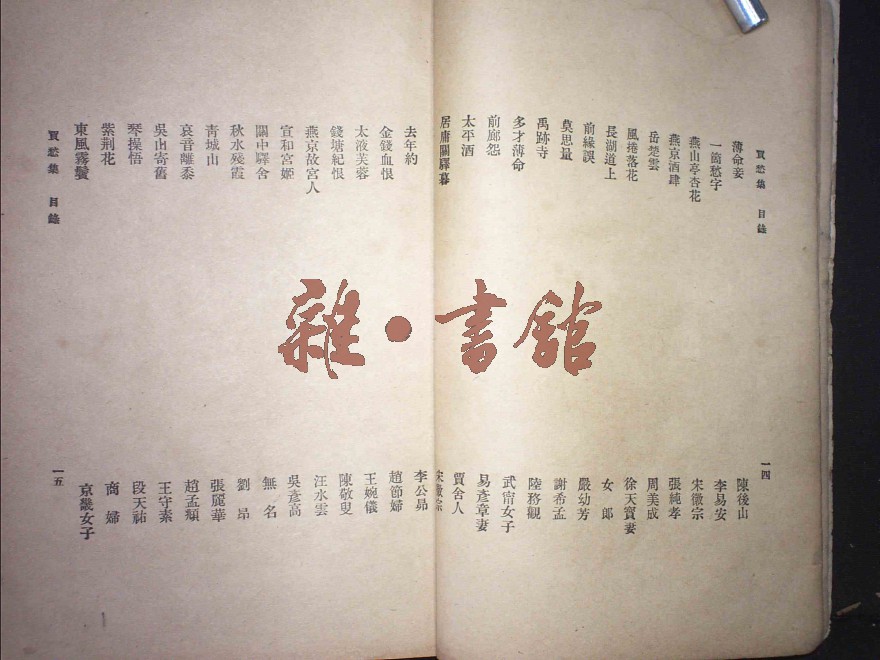 買愁集 目錄 一四
薄命妾 陳後山
一箇愁字 李易安
燕山亭杏花 宋徽宗
燕京酒肆 張純孝
岳楚雲 周美成
風捲落花 徐天寶妻
長湖道上 女郎
前緣誤 嚴幼芳
莫思量 謝希孟
禹跡寺 陸務觀
多才薄命 武甯女子
前廊怨 易彥章妻
太平酒 賈舍人
居庸關驛暮 宋徽宗
去年約 李公昴
金錢血恨 趙節婦
太液芙蓉 王婉儀
錢塘紀恨 陳敬叟
燕京故宮人 汪水雲
宣和宮姬 吳彥高
關中驛舍 無名
秋水殘霞 劉昂
青城山 張麗華
哀音離黍 趙孟頫
吳山寄舊 王守素
琴操悟 段天祐
紫荊花 商婦
東風霧鬢 京畿女子
買愁集 目錄 一五
雜·書館